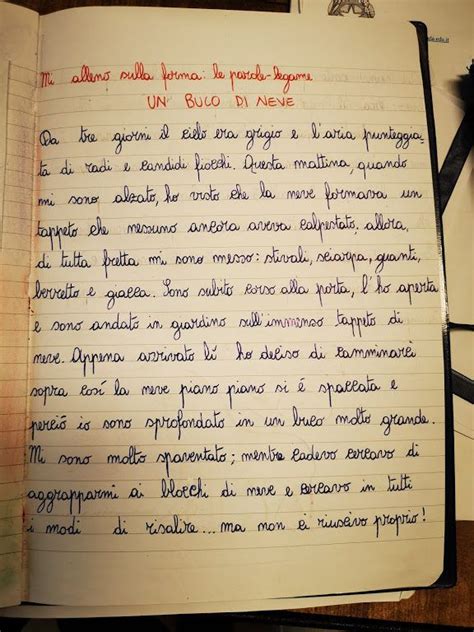 Mi alleno sulla forma: le parole-legame
UN' BUCO DI NEVE
Da tre giorni il cielo era grigio e l'aria punteggia-
ta di radi e candidi fiocchi. Questa mattina, quando
mi sono alzato, ho visto che la neve formava un
tappeto che nessuno ancora aveva calpestato; allora,
di tutta fretta mi sono messo: stivali, sciarpa, guanti,
berretto e giacca. Sono subito corso alla porta, l'ho aperta
e sono andato in giardino sull'immenso tappeto di
neve. Appena arrivato lí ho deciso di camminarci
sopra cosí la neve piano piano si é spaccata e
perció io sono sprofondato in un buco molto grande.
Mi sono molto spaventato; mentre cadevo cercavo di
aggrapparmi ai blocchi di neve e cercavo in tutti
i modi di risalire... ma non ci riuscivo proprio!